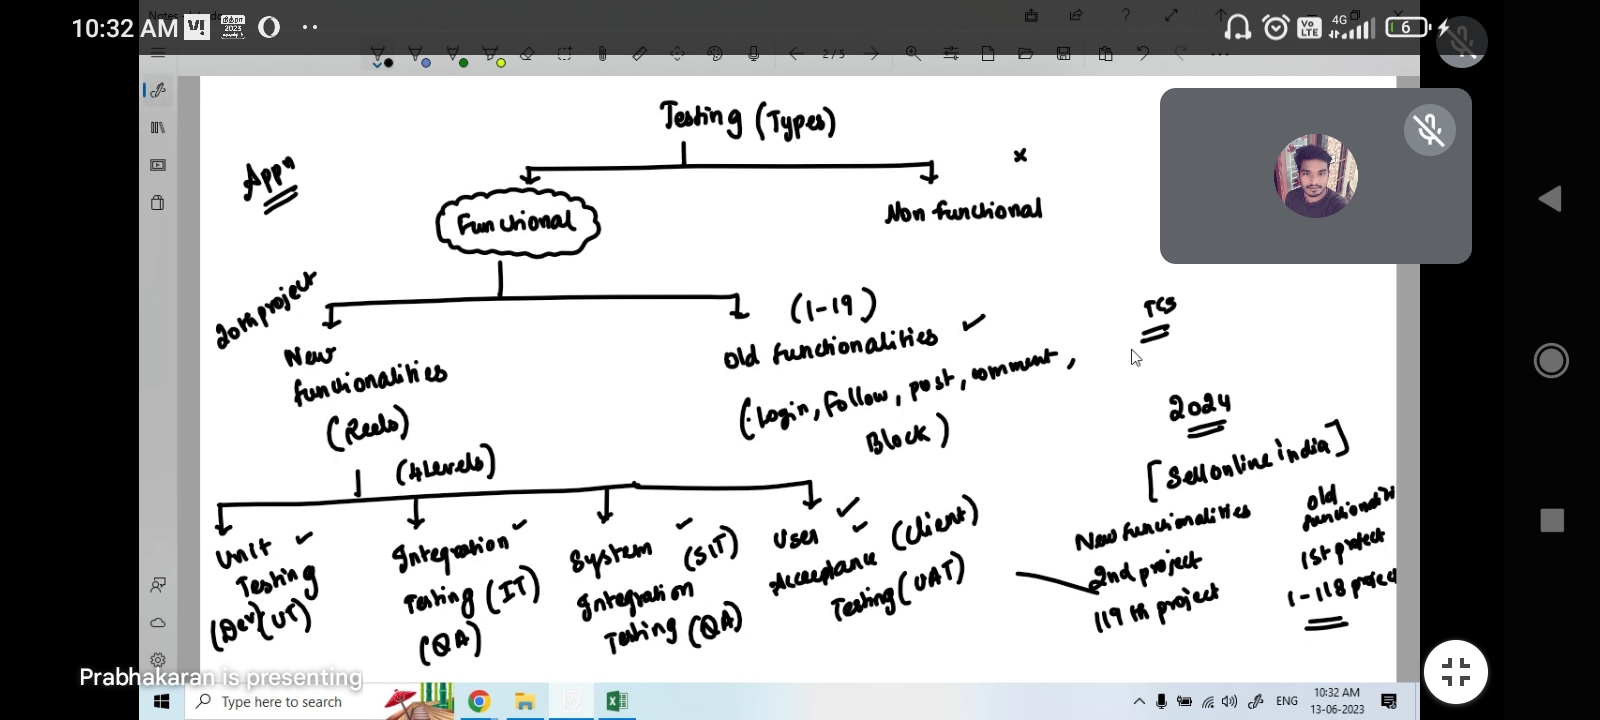 10:32 AM
4G
Vo LTE
6
2/5
Testing (Types)
Appn
x
Functional
Non functional
20th project
(1-19)
New functionalities
(Reels)
old functionalities
(Login, Follow, post, comment,
Block)
TCS
2024
[Sell online india]
(4 Levels)
Unit
Testing
(Dev) (UT)
Integration
Testing (IT)
(QA)
System (SIT)
Integration
Testing (QA)
User
Acceptance (Client)
Testing (UAT)
New functionalities
2nd project
119 th project
old
1st project
1-118 project
Prabhakaran is presenting
Type here to search
ENG
10:32 AM
13-06-2023